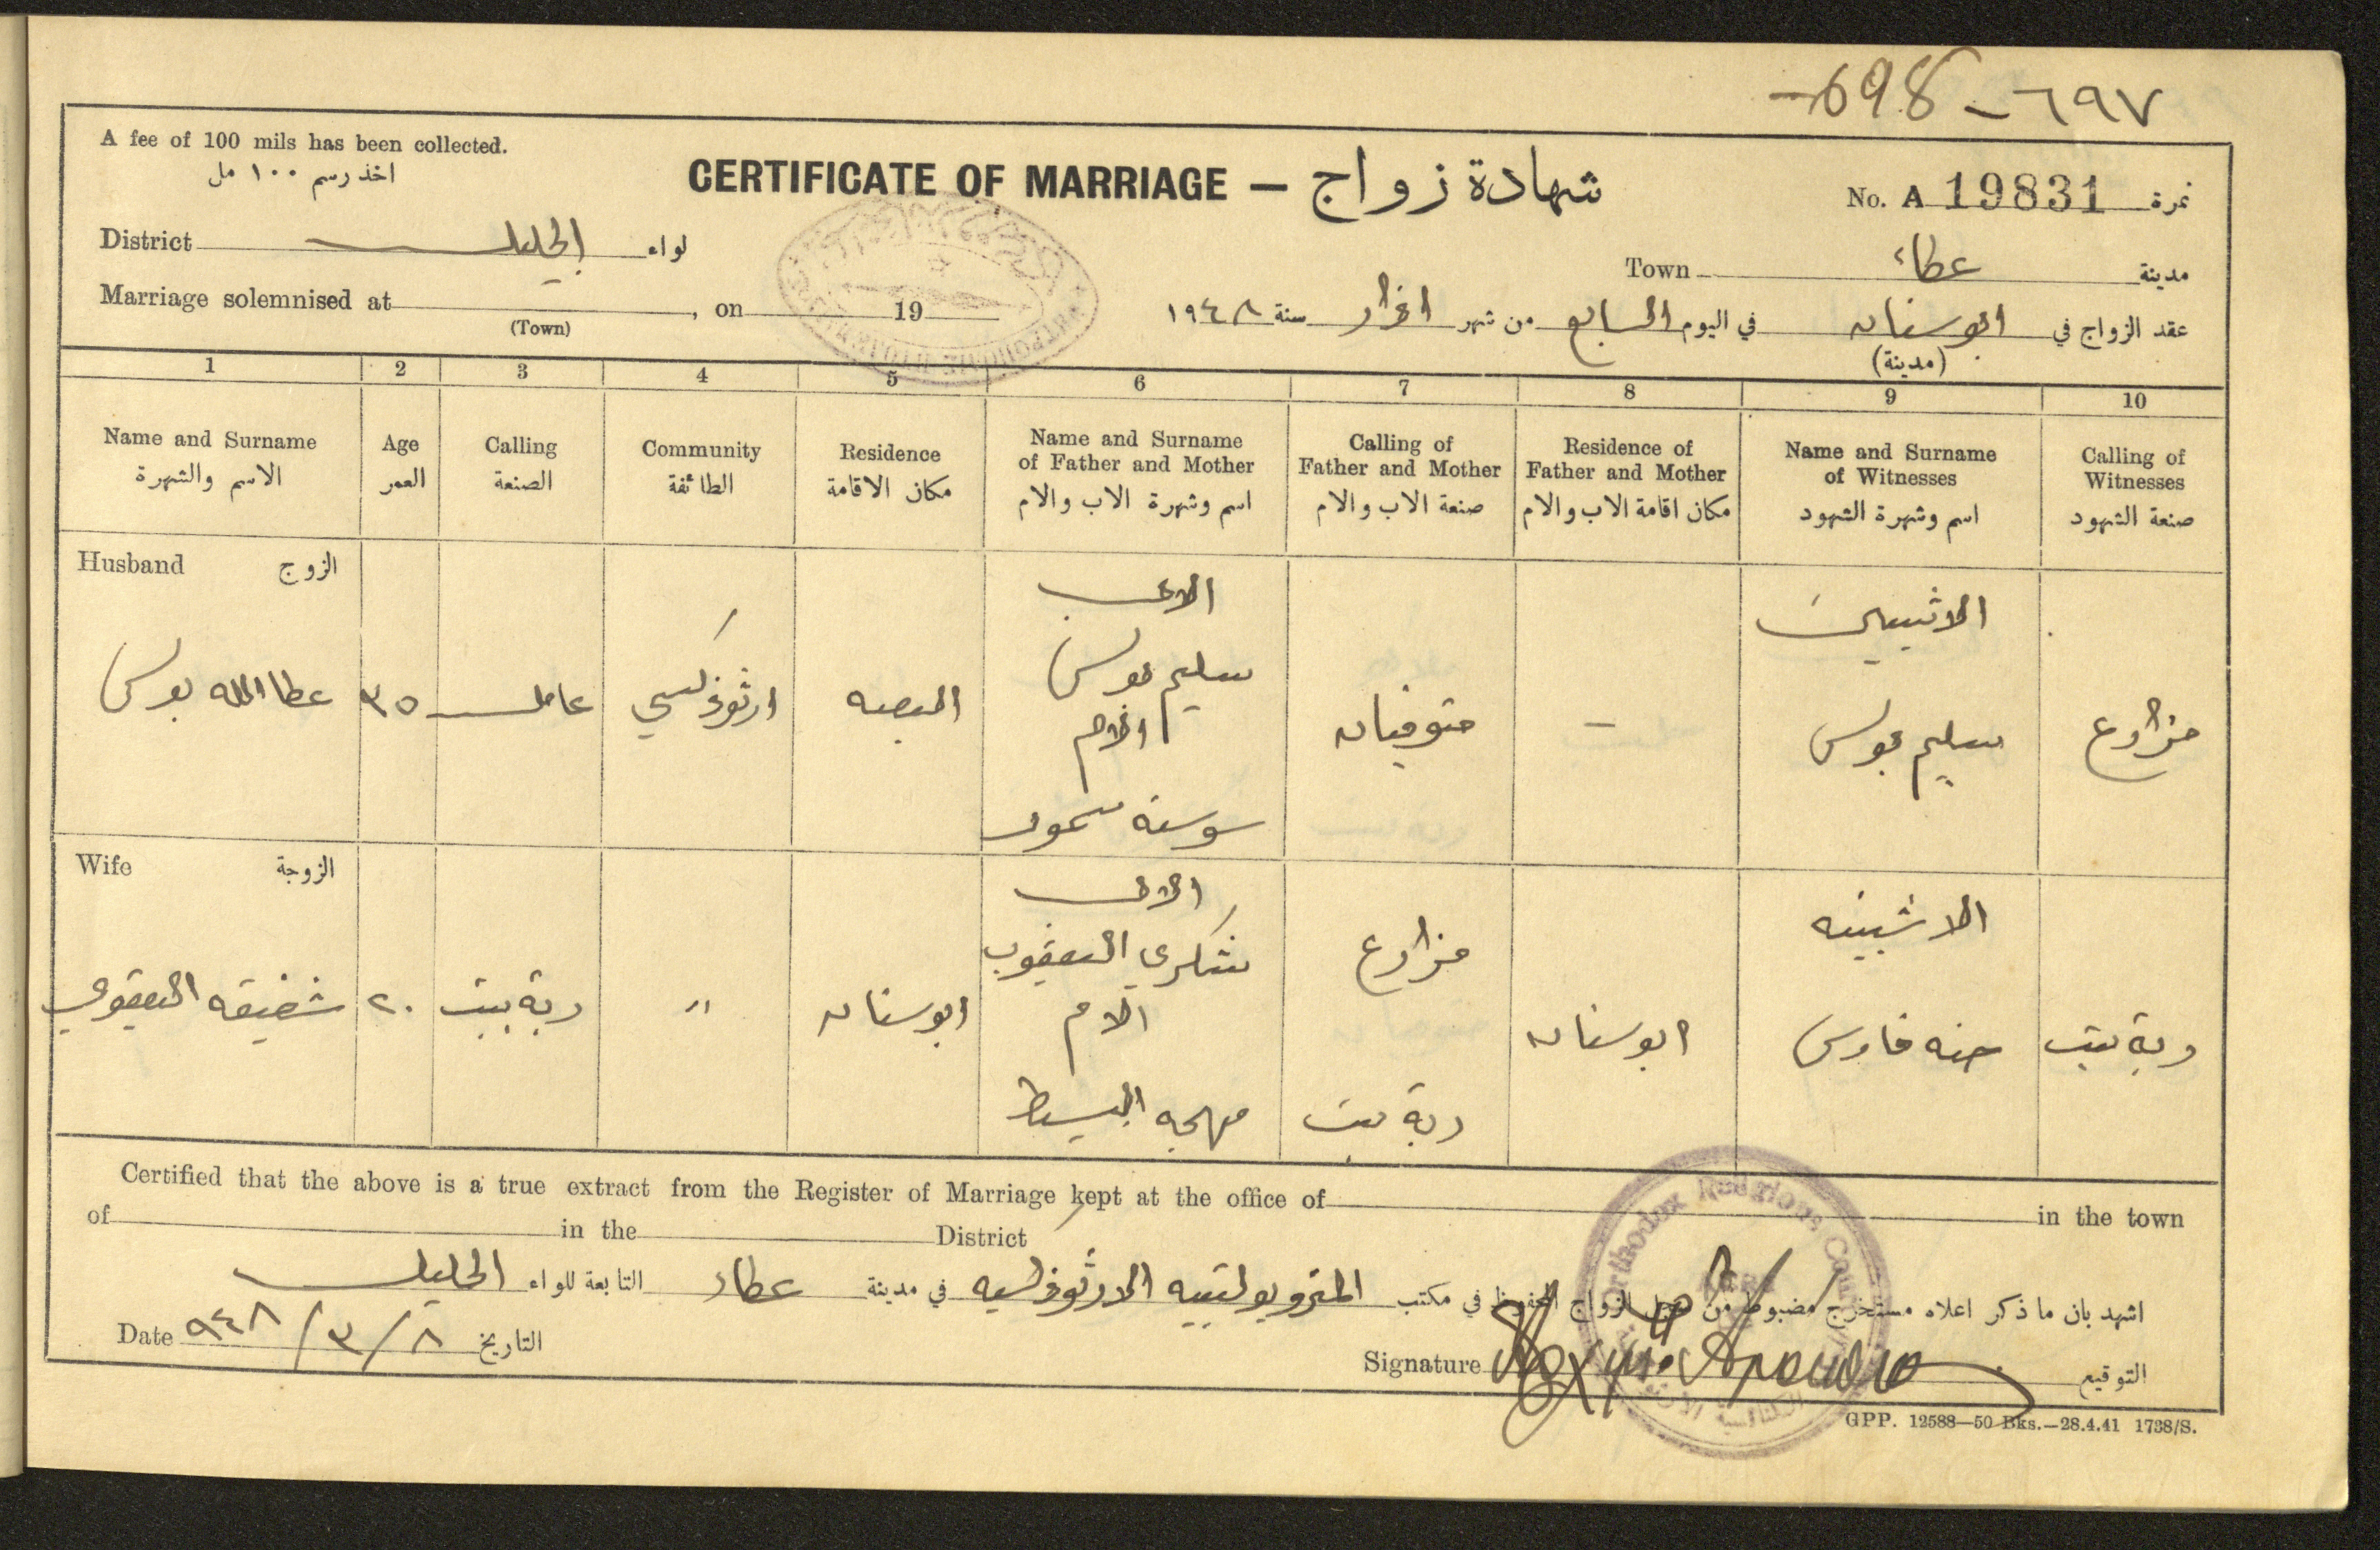 -698 - ٦٩٧
A fee of 100 mils has been collected.
اخذ رسم ١٠٠ مل
CERTIFICATE OF MARRIAGE – شهادة زواج
No. A 19831 نمرة
District الجليل لواء
Town عكاء مدينة
Marriage solemnised at , on 19
(Town)
عقد الزواج في ابوسنان في اليوم السابع من شهر اذار سنة ١٩٤٨
(مدينة)
1 2 3 4 5 6 7 8 9 10
Name and Surname
الاسم والشهرة
Age
العمر
Calling
الصنعة
Community
الطائفة
Residence
مكان الاقامة
Name and Surname
of Father and Mother
اسم وشهرة الاب والام
Calling of
Father and Mother
صنعة الاب والام
Residence of
Father and Mother
مكان اقامة الاب والام
Name and Surname
of Witnesses
اسم وشهرة الشهود
Calling of
Witnesses
صنعة الشهود
Husband الزوج
عطا الله بولس
٣٥
عامل
ارثوذكسي
البصه
الاب
سليم بولس
الام
سوسنه
متوفيان
–
الاشبين
سليم بولس
مزارع
Wife الزوجة
شفيقه اليعقوب
٢٠
ربة بيت
"
ابوسنان
الاب
شكري اليعقوب
الام
مهجه البسيط
مزارع
ربة بيت
ابوسنان
الاشبينه
حنه فارس
ربة بيت
Certified that the above is a true extract from the Register of Marriage kept at the office of in the town
of in the District
اشهد بان ما ذكر اعلاه مستخرج مضبوط من سجل الزواج المحفوظ في مكتب المتروبوليتيه الارثوذكسيه في مدينة عكاء التابعة للواء الجليل
Date ٩٤٨/٣/٨ التاريخ
Signature التوقيع
Orthodox Religious
GPP. 12588—50 Bks.—28.4.41 1738/S.